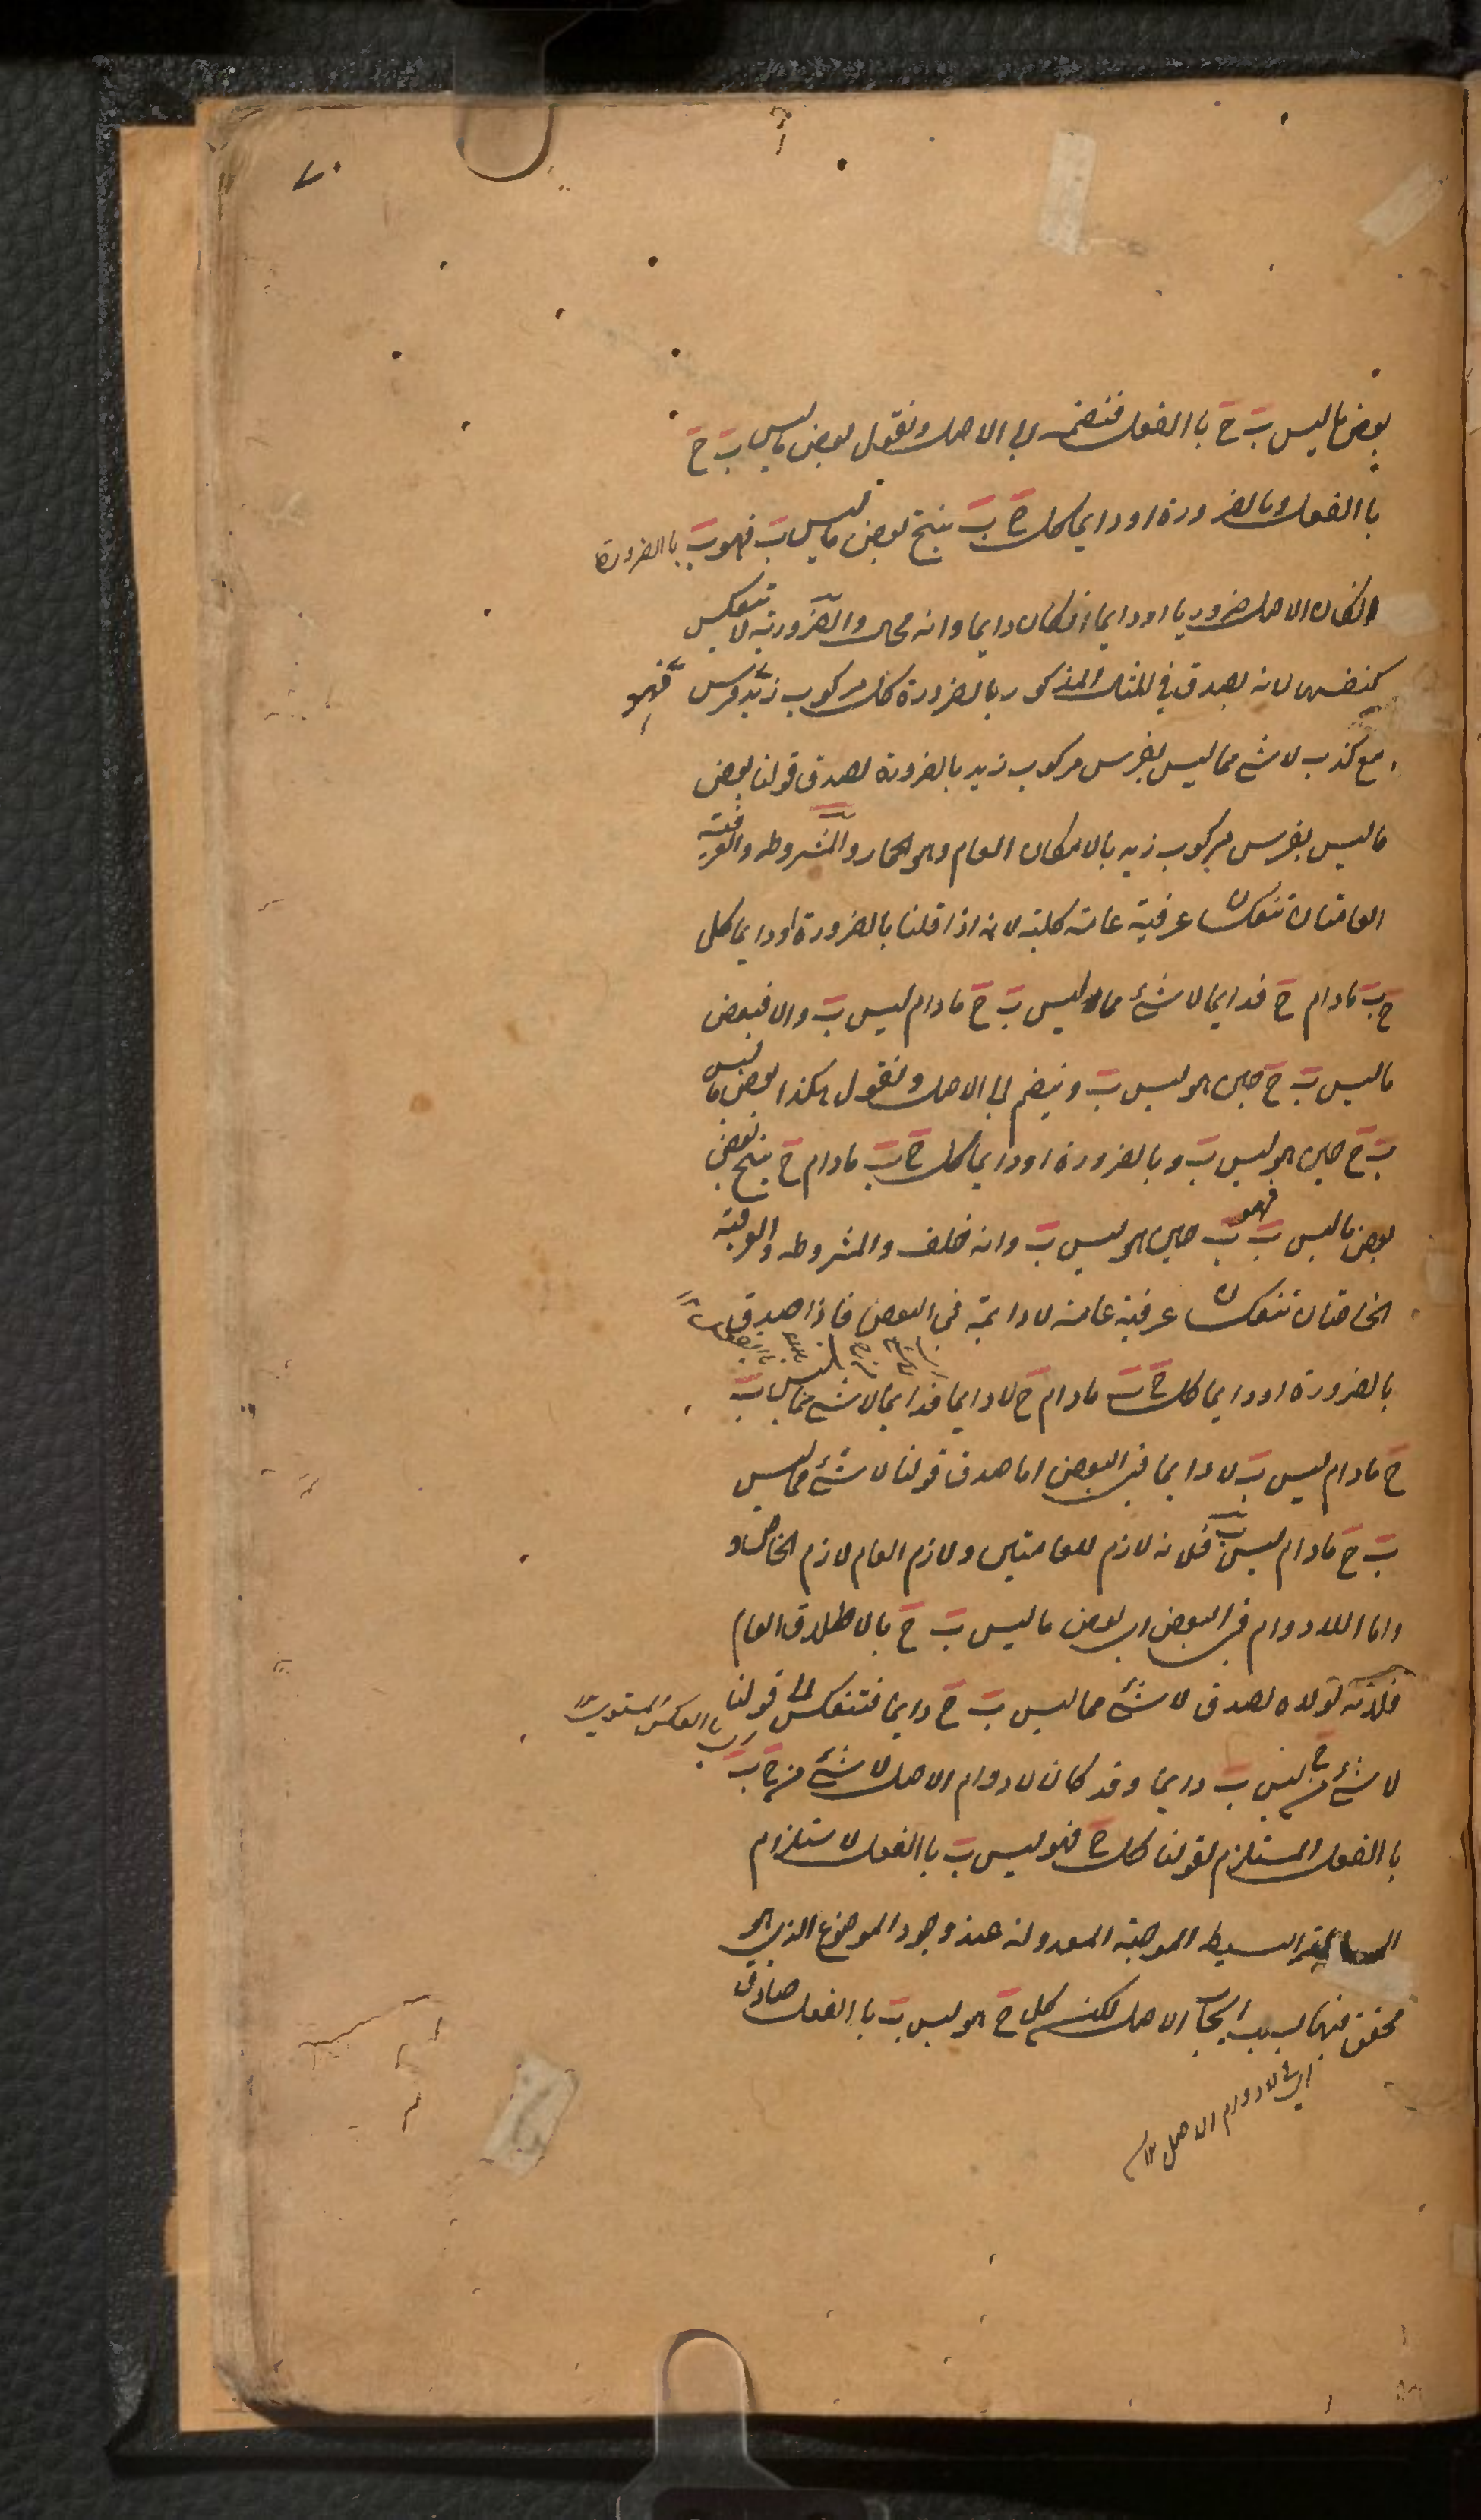 ٧٠
بعض ما ليس ب ج با الفعل فنضمه الى الاصل ونقول بعض ما ليس ب ج
با الفعل وبالضرورة او دايما كل ج ب ينتج بعض ما ليس ب فهو ب با الضرورة
انكان الاصل ضروريا او دايما انكان دايما وانه محال والضرورية لا تنعكس
كنفسها لانه يصدق في المثال المذكور بالضرورة كل مركوب زيد فرس فهو
مع كذب لا شئ مما ليس بفرس مركوب زيد بالضرورة لصدق قولنا بعض
ما ليس بفرس مركوب زيد بالامكان العام وهو الحمار والمشروطه والعرفية
العامتان تنعكسان عرفية عامة كلية لانه اذا قلنا بالضرورة او دايما كل
ج ب مادام ج فدايما لا شئ مما ليس ب ج مادام ليس ب والا فبعض
ما ليس ب ج حين هو ليس ب ونضم الى الاصل ونقول هكذا بعض ما ليس
ب ج حين هو ليس ب وبالضرورة او دايما كل ج ب مادام ج ينتج بعض
بعض ما ليس ب فهو ب حين هو ليس ب وانه خلف والمشروطه والعرفية
الخاصتان تنعكسان عرفية عامة لا دايمة في البعض فاذا صدق
بالضرورة او دايما كل ج ب مادام ج لا دايما فدايما لا شئ مما ليس ب
ج مادام ليس ب لا دايما في البعض اما صدق قولنا لا شئ مما ليس
ب ج مادام ليس ب فلانه لازم للعامتين ولازم العام لازم الخاص و
واما اللادوام في البعض اى بعض ما ليس ب ج بالاطلاق العام
فلانه لولاه لصدق لا شئ مما ليس ب ج دايما فتنعكس الى قولنا
با العكس المستوى
لا شئ من ج ليس ب دايما وقد كان لا دوام الاصل لا شئ من ج ب
با الفعل المستلزم لقولنا كل ج فهو ليس ب با الفعل لاستلزام
السالبة البسيطه الموجبة المعدولة عند وجود الموضوع الذى هو
محقق فيها بسبب ايجاب الاصل لكن كل ج هو ليس ب با الفعل صادق
اى لا دوام الاصل ١٢